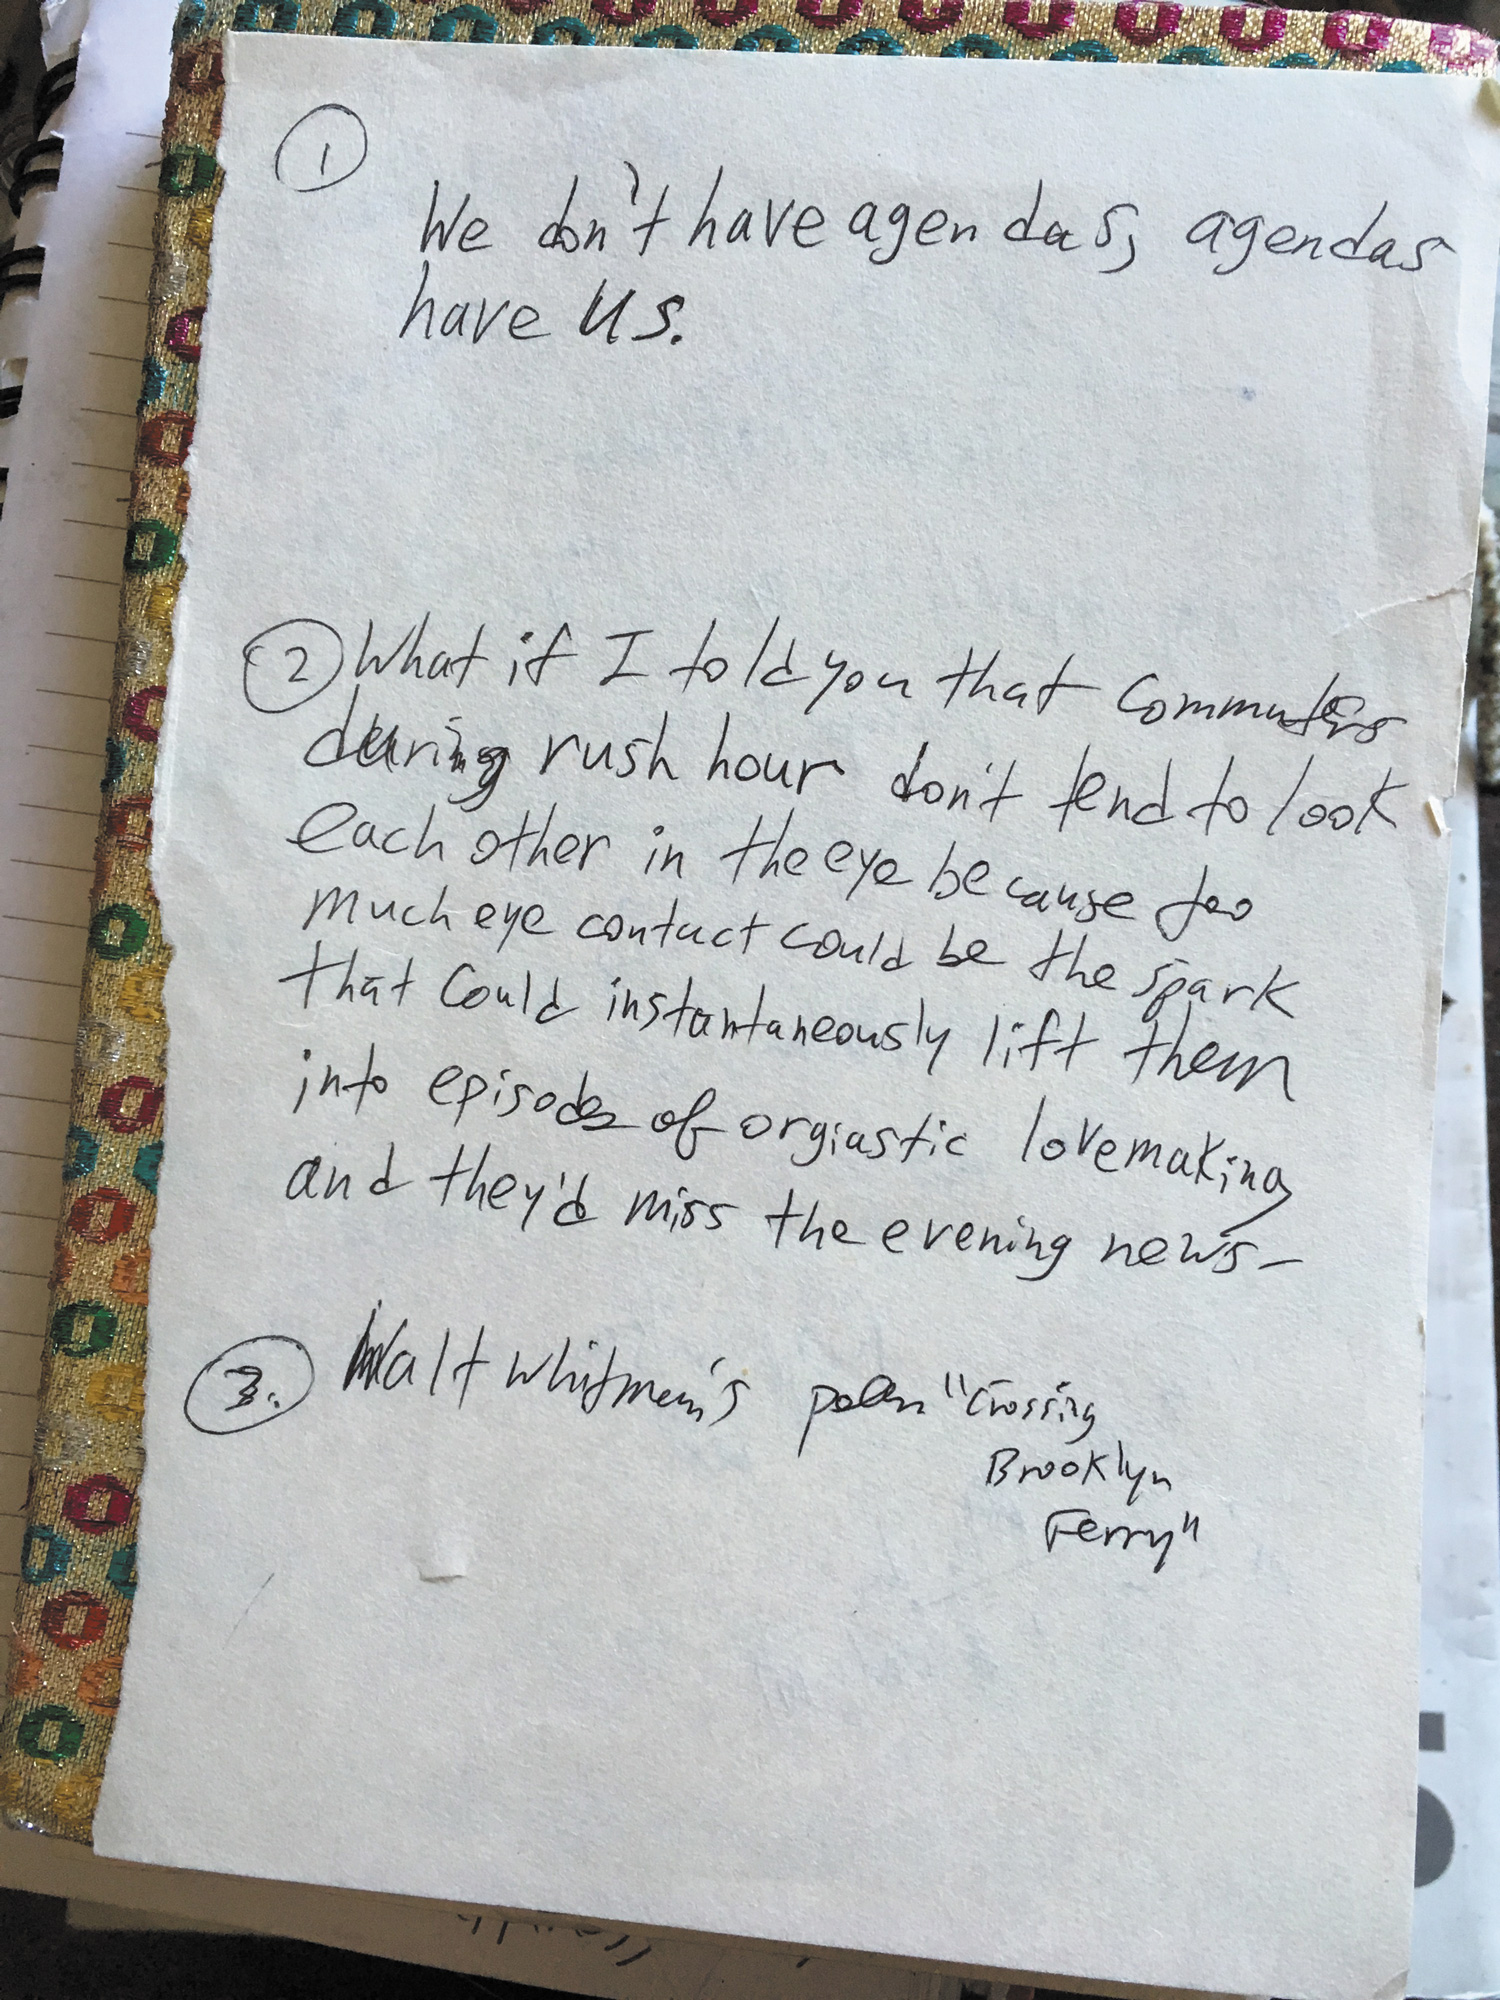 1
We don't have agendas, agendas
have us.
2 What if I told you that commuters
during rush hour don't tend to look
each other in the eye because too
much eye contact could be the spark
that could instantaneously lift them
into episodes of orgiastic lovemaking
and they'd miss the evening news—
3. Walt Whitman's poem "Crossing
Brooklyn
Ferry"